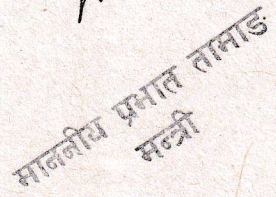 माननीय प्रभात तामाङ
मन्त्री